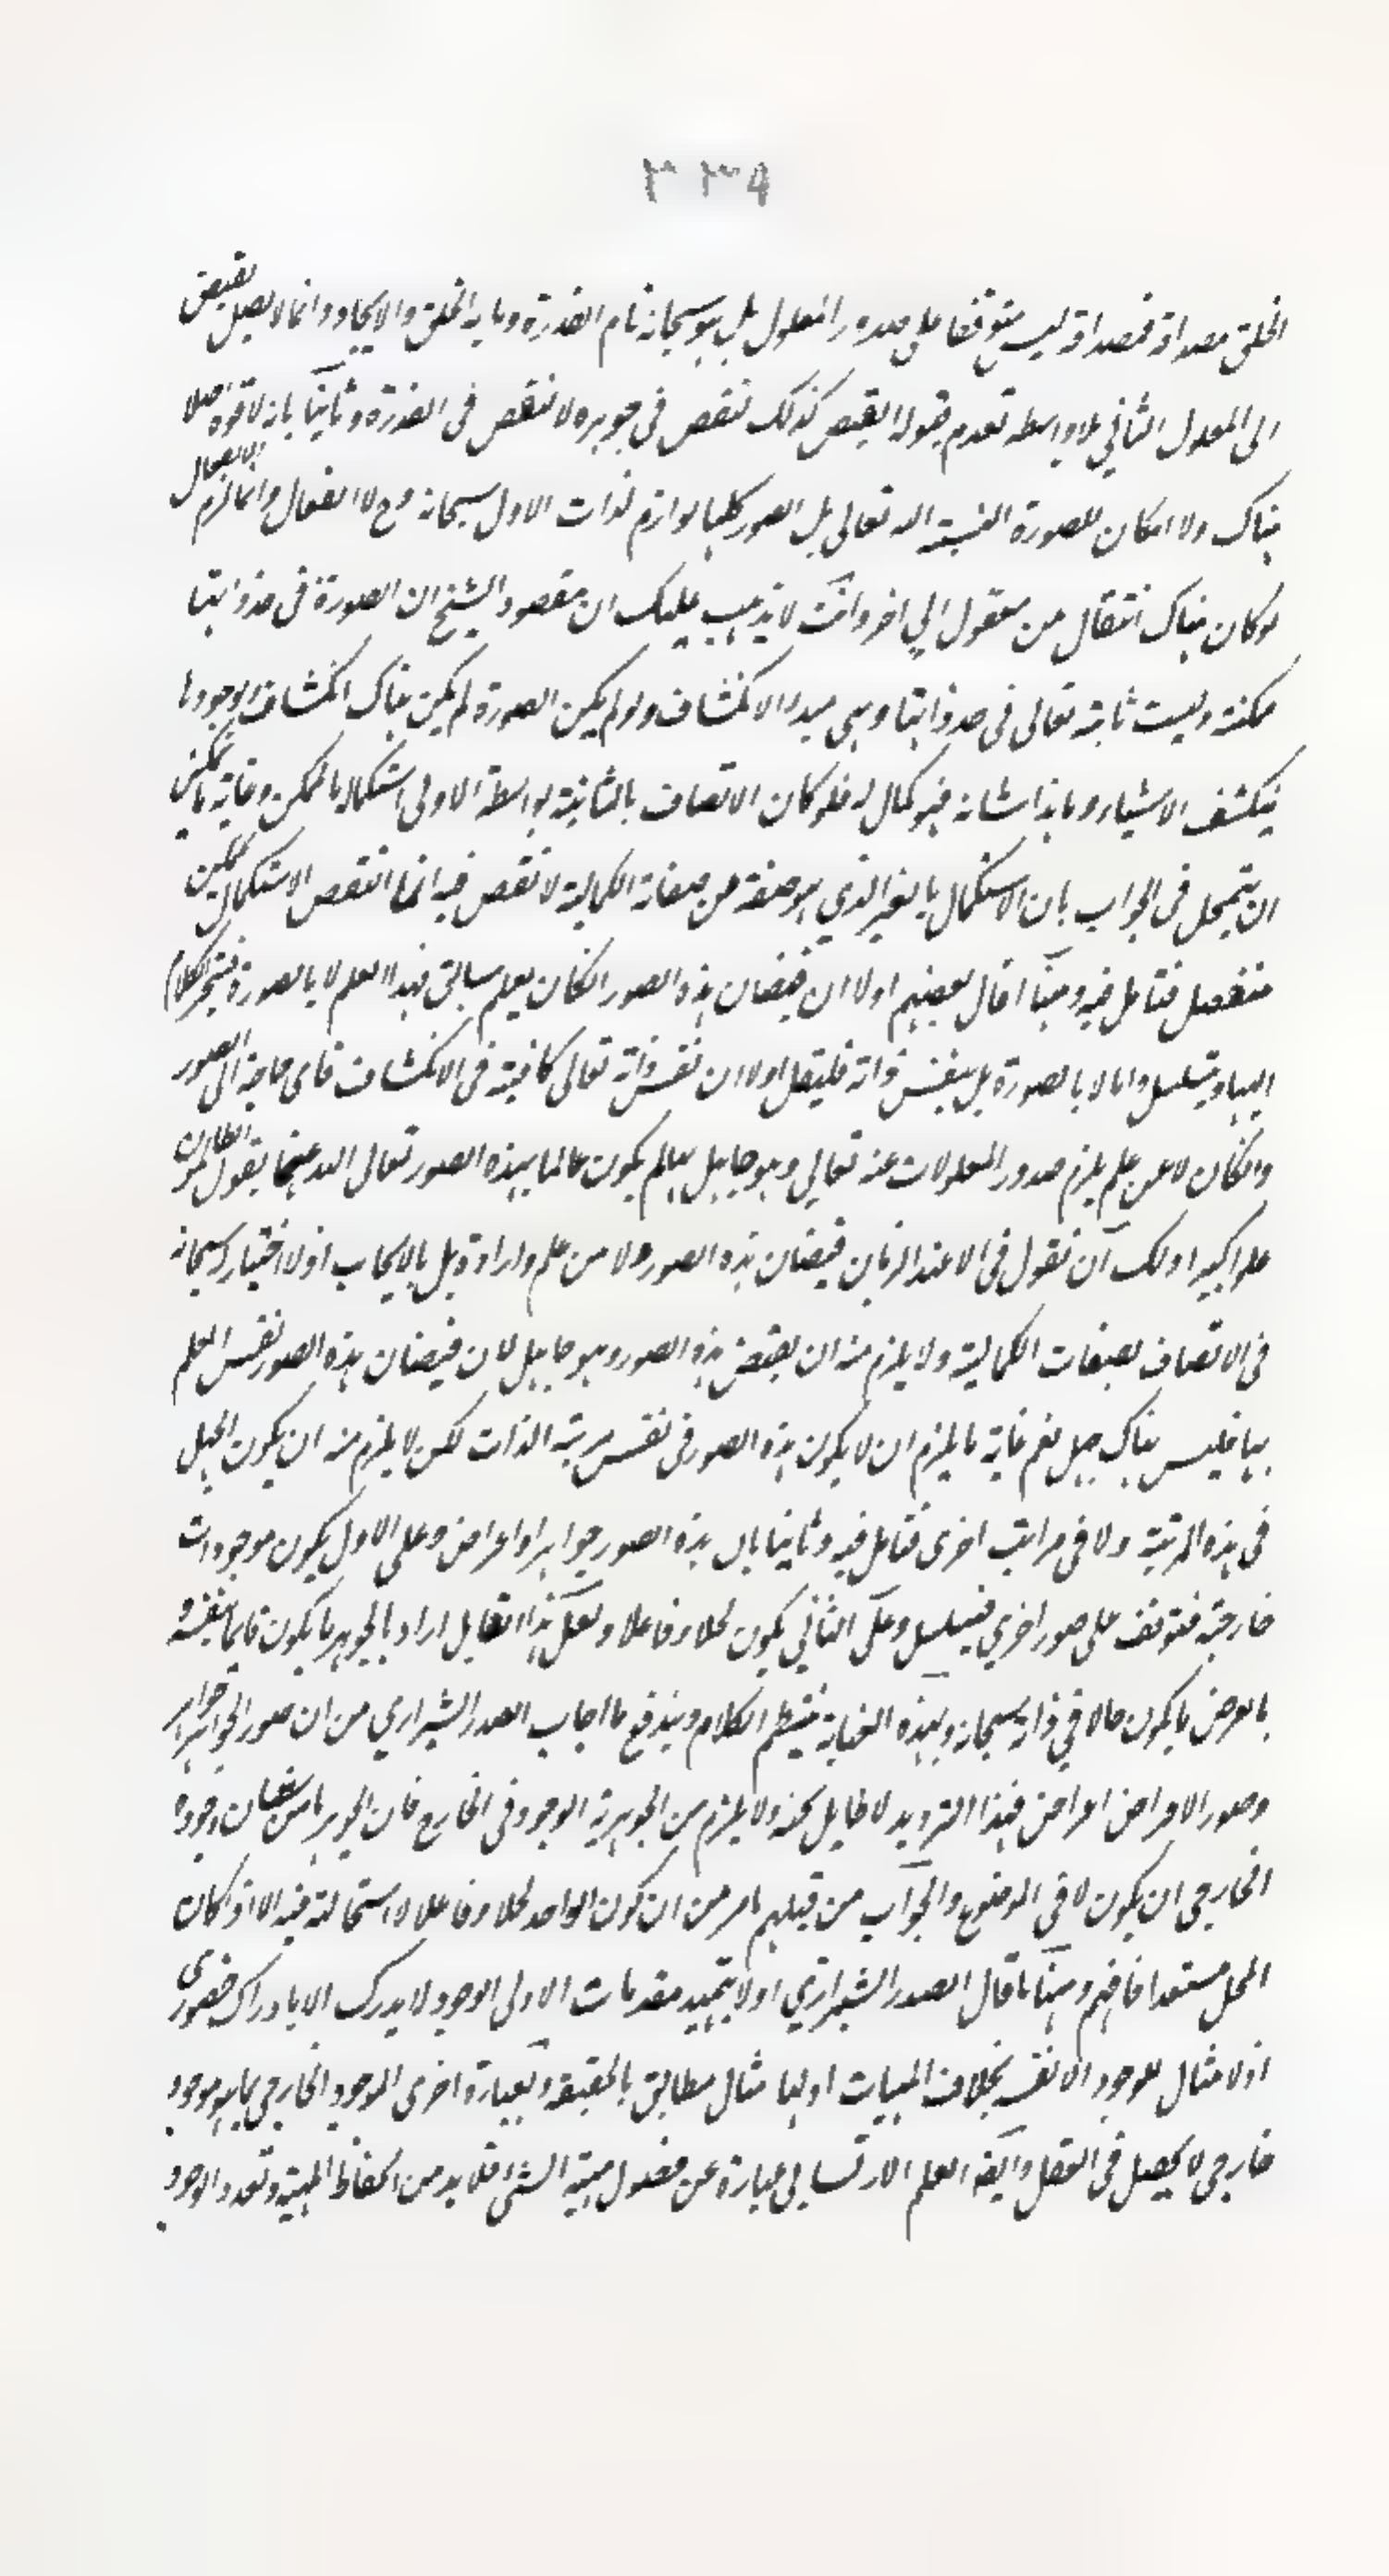 ٣٣٩
الخلق مصداقه فمصداقه ليس متوقفا على صدور المعلول بل هو سبحانه تام القدرة وما به الخلق والايجاد وانما لا يصل بفيض
الى المعلول الثاني بلا واسطة تقدم قبوله الفيض كذلك نقص في جوهره لا نقص في القدرة وثانيا بانه لا قوة اصلا
هناك ولا امكان للصورة بالنسبة اليه تعالى بل الصور كلها لوازم لذات الاول سبحانه وح لا انفعال وانما لزم الانفعال
لو كان هناك انتقال من معقول الى اخر وانت لا يذهب عليك ان مقصود الشيخ ان الصورة في حد ذاتها
ممكنة وليست ثابتة تعالى في حد ذاتها وهى مبدء الانكشاف ولو لم يكن الصورة لم يكن هناك انكشاف بوجودها
ينكشف الاشياء وما هذا شانه فهو كمال له فلو كان الاتصاف بالثانية بواسطة الاولى استكمالا بالممكن وغاية ما يمكن
ان يتمحل في الجواب بان الاستكمال بالغير الذي هو صفة من صفاته الكمالية لا نقص فيه انما النقص الاستكمال بممكن
منفصل فتامل فيه ومنها ما قال بعضهم اولا ان فيضان هذه الصور انكان بعلم سابق فهذا العلم لا بالصورة فينجر الكلام
اليها ويتسلسل واما لا بالصورة بل بنفس ذاته فليقل اولا ان نفس ذاته تعالى كافية في الانكشاف فاى حاجة الى الصور
وانكان لا عن علم يلزم صدور المعلولات عنه تعالى وهو جاهل بعلم يكون عالما بهذه الصور تعالى الله عما يقول الظالمون
علوا كبيرا ولك ان نقول في الاعتذار بان فيضان هذه الصور لا من علم وارادة بل بالايجاب اذ لا اختيار له سبحانه
في الاتصاف بصفات الكمالية ولا يلزم منه ان يفيض هذه الصور وهو جاهل لان فيضان هذه الصور نفس العلم
بها فليس هناك جهل نعم غاية ما يلزم ان لا يكون هذه الصور في نفس مرتبة الذات لكن لا يلزم منه ان يكون الجهل
في هذه المرتبة ولا في مراتب اخرى فتامل فيه وثانيا بان هذه الصور جواهر او اعراض وعلى الاول يكون موجودات
خارجية فتوقف على صور اخرى فيتسلسل وعلى الثاني يكون محلا وفاعلا ولعل هذا القايل اراد بالجوهر ما يكون قايما بنفسه و
بالعرض ما يكون حالا في ذاته سبحانه وبهذه العناية ينتظم الكلام ويندفع ما اجاب الصدر الشيرازي من ان صور الجواهر جواهر
وصور الاعراض اعراض فهذا الترديد لا طايل تحته ولا يلزم من الجوهرية الوجود في الخارج فان الجوهر ما من شان وجوده
الخارجى ان يكون لا في الموضوع والجواب من قبلهم ما مر من ان كون الواحد محلا وفاعلا لا استحالة فيه الا اذا كان
المحل مستعدا فافهم ومنها ما قال الصدر الشيرازي اولا بتمهيد مقدمات الاولى الوجود لا يدرك الا بادراك حضوري
اذ لا مثال للوجود الا نفسه بخلاف المهيات اذ لها مثال مطابق بالحقيقة وبعبارة اخرى الموجود الخارجى بما هو موجود
خارجى لا يحصل في العقل وايضه العلم الارتسامي عبارة عن حصول مهية الشئ فلا بد من انحفاظ المهية وتعدد الوجود